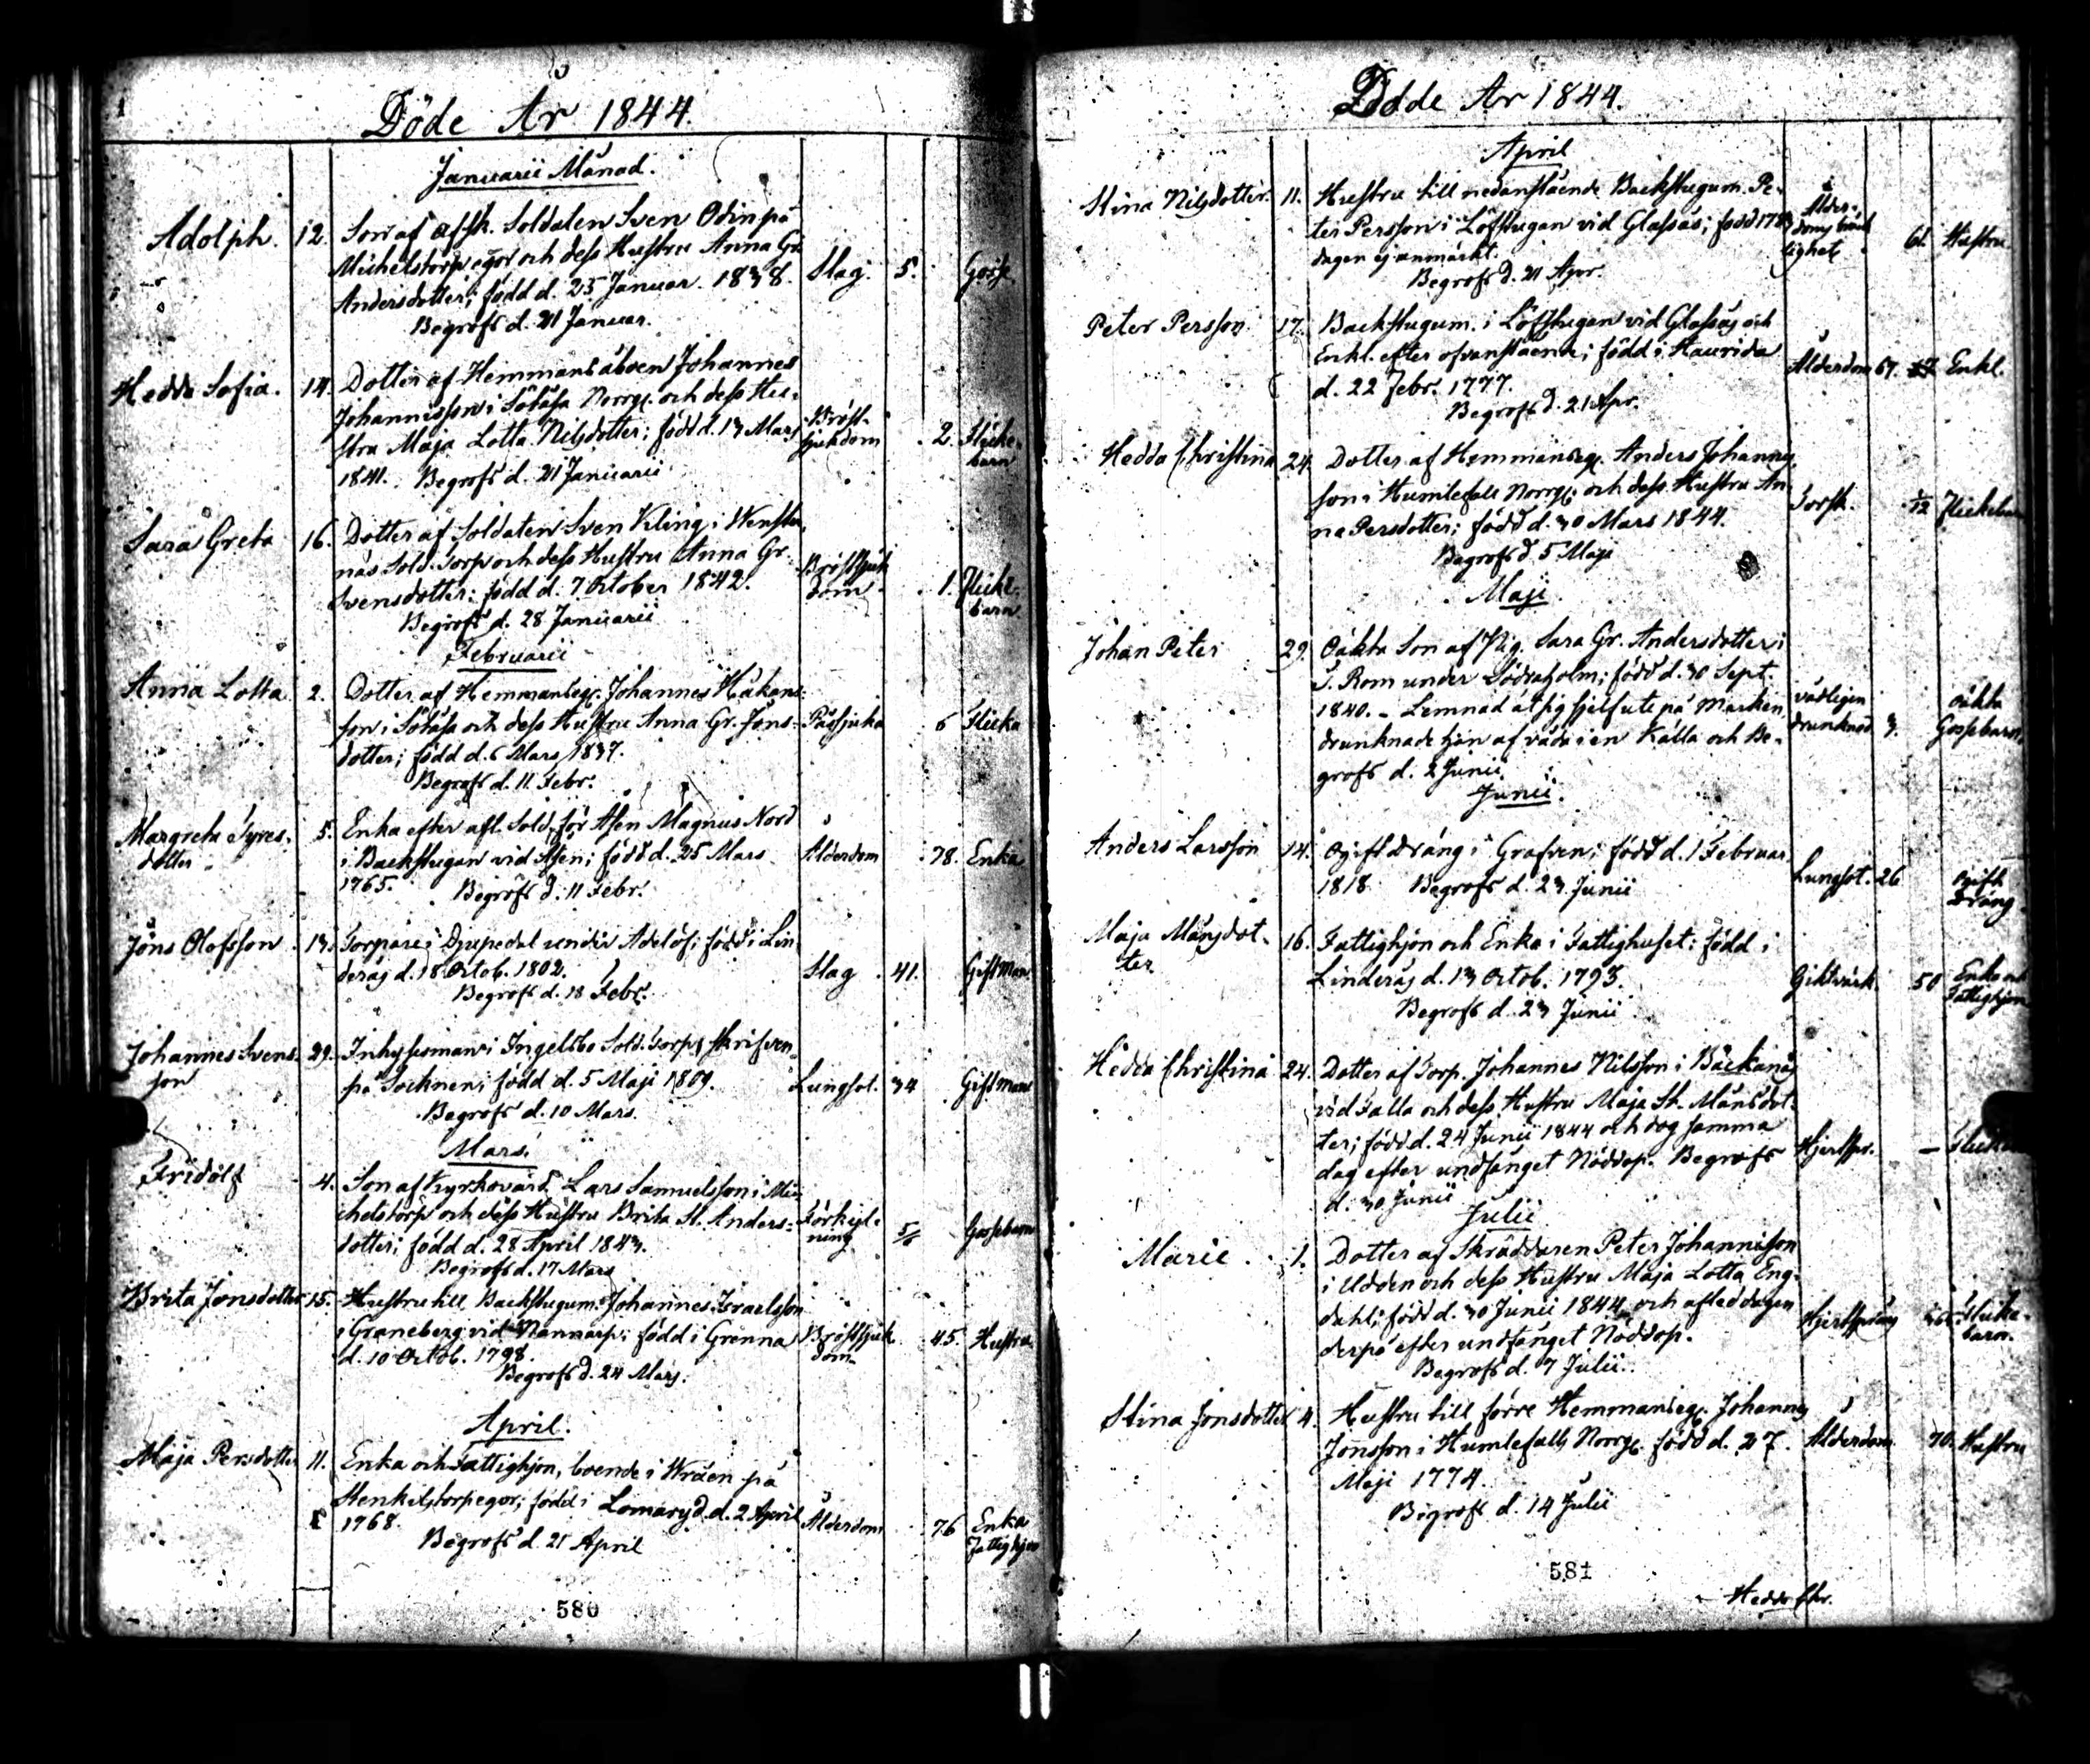 Döde År 1844.
Januarii Månad.
Adolph. 12. Son af afsk. Soldaten Sven Odin på
Michelstorp egor och dess Hustru Anna Gr.
Andersdotter; född d. 25 Januar. 1838. Slag. 5. Gosse
Begrofs d. 21 Januar.
Hedda Sofia. 14. Dotter af Hemmans åboen Johannes
Johannisson i Sötåsa Norrg. och dess Hu-
stru Maja Lotta Nilsdotter; född d. 13 Mars Bröst-sjukdom 2. Flicke-barn
1841. Begrofs d. 21 Januarii
Sara Greta 16. Dotter af Soldaten Sven Kling i
näs Sold. Torp och dess Hustru Anna Gr.
Svensdotter; född d. 7 October 1842. Bröstsjuk dom 1. Flicke-barn
Begrofs d. 28 Januarii
Februarii
Anna Lotta 2. Dotter af Hemmanseg. Johannes Håkans-
son i Sötåsa och dess Hustru Anna Gr. Jöns- 6 Flicka
dotter; född d. 6 Mars 1837.
Begrofs d. 11 Febr.
Margreta Tyres-dotter 5. Enka efter afl. Sold. för Åsen Magnus Nord
i Backstugan vid Åsen; född d. 25 Mars Ålderdom 78. Enka
1765. Begrofs d. 11 Febr.
Jöns Olofsson 13. Torpare i Djupedal under Adelöf; född i Lin-
derås d. 18 Octob. 1802. Slag 41. Gift Man
Begrofs d. 18 Febr.
Johannes Svens-son 29. Inhysesman i Ingelsbo Sold. Torp, skrifven
på Socknen; född d. 5 Maji 1809. Lungsot. 34 Gift Man
Begrofs d. 10 Mars.
Mars.
Fridolf 4. Son af Kyrkovärd. Lars Samuelsson i Mi-
chelstorp och dess Hustru Brita St. Anders- Förkyl-ning Gossebarn
dotter; född d. 28 April 1843.
Begrofs d. 17 Mars
Brita Jonsdotter 15. Hustru till Backstugum. Johannes Israelsson
i Graneberg vid Nannarp; född i Grenna Bröstsjuk dom 45. Hustru
d. 10 Octob. 1798.
Begrofs d. 24 Mars.
April.
Maja Persdotter 11. Enka och Fattighjon, boende i Wråen på
Stenkilstorpegor; född i Lomaryd d. 2 April Ålderdom 76 Enka Fattighjon
1768.
Begrofs d. 21 April
580
Döde År 1844.
April
Stina Nilsdotter. 11. Hustru till nedanstående Backstugum. Pe-
ter Persson i Löfstugan vid Glasås; född Ålder-doms bräck lighet 61. Hustru
dagen ej anmärkt.
Begrofs d. 21 Apr.
Peter Persson 17. Backstugum. i Löfstugan vid Glasås och
Enkl. efter ofvanstående; född i Haurida Ålderdom 67. Enkl.
d. 22 Febr. 1777.
Begrofs d. 21 Apr.
Hedda Christina 24. Dotter af Hemmanseg. Anders Johannes-
son i Humlefall Norrg. och dess Hustru An-
na Persdotter; född d. 30 Mars 1844. Torsk. 1/12 Flickebarn
Begrofs d. 5 Maji
Maji
Johan Peter 29. Oäkta Son af Pig. Sara Gr. Andersdotter i
T. Rom under Södraholm; född d. 30 Sept.
1840. - Lemnad åt sig sjelf ute på marken vådligen drunknad 3. oäkta Gossebarn
drunknade han af våda i en Källa och Be-
grofs d. 2 Junii
Junii.
Anders Larsson 14. Ogift Dräng i Grafven; född d. 1 Februar.
1818. Begrofs d. 23 Junii Lungsot. 26 Ogift Dräng
Maja Månsdot-ter 16. Fattighjon och Enka i Fattighuset; född i
Linderås d. 13 Octob. 1793. Giktvärk 50 Enka och Fattighjon
Begrofs d. 23 Junii
Hedda Christina 24. Dotter af Torp. Johannes Nilsson i Bäckanäs
vid Falla och dess Hustru Maja St. Månsdot-
ter; född d. 24 Junii 1844 och dog samma
dag efter undfånget Nöddop. Begrofs Hjertspr. —
d. 30 Junii
Julii
Marie 1. Dotter af Skräddaren Peter Johannisson
i Udden och dess Hustru Maja Lotta Eng-
dahl; född d. 30 Junii 1844, och afled dagen Hjertsprång Flicke-barn.
derpå efter undfånget Nöddop.
Begrofs d. 7 Julii.
Stina Jonsdotter 4. Hustru till förre Hemmanseg. Johannes
Jonsson i Humlefall Norrg. född d. 27. Ålderdom 70. Hustru
Maji 1774.
Begrofs d. 14 Julii
581
Hedda Chr.